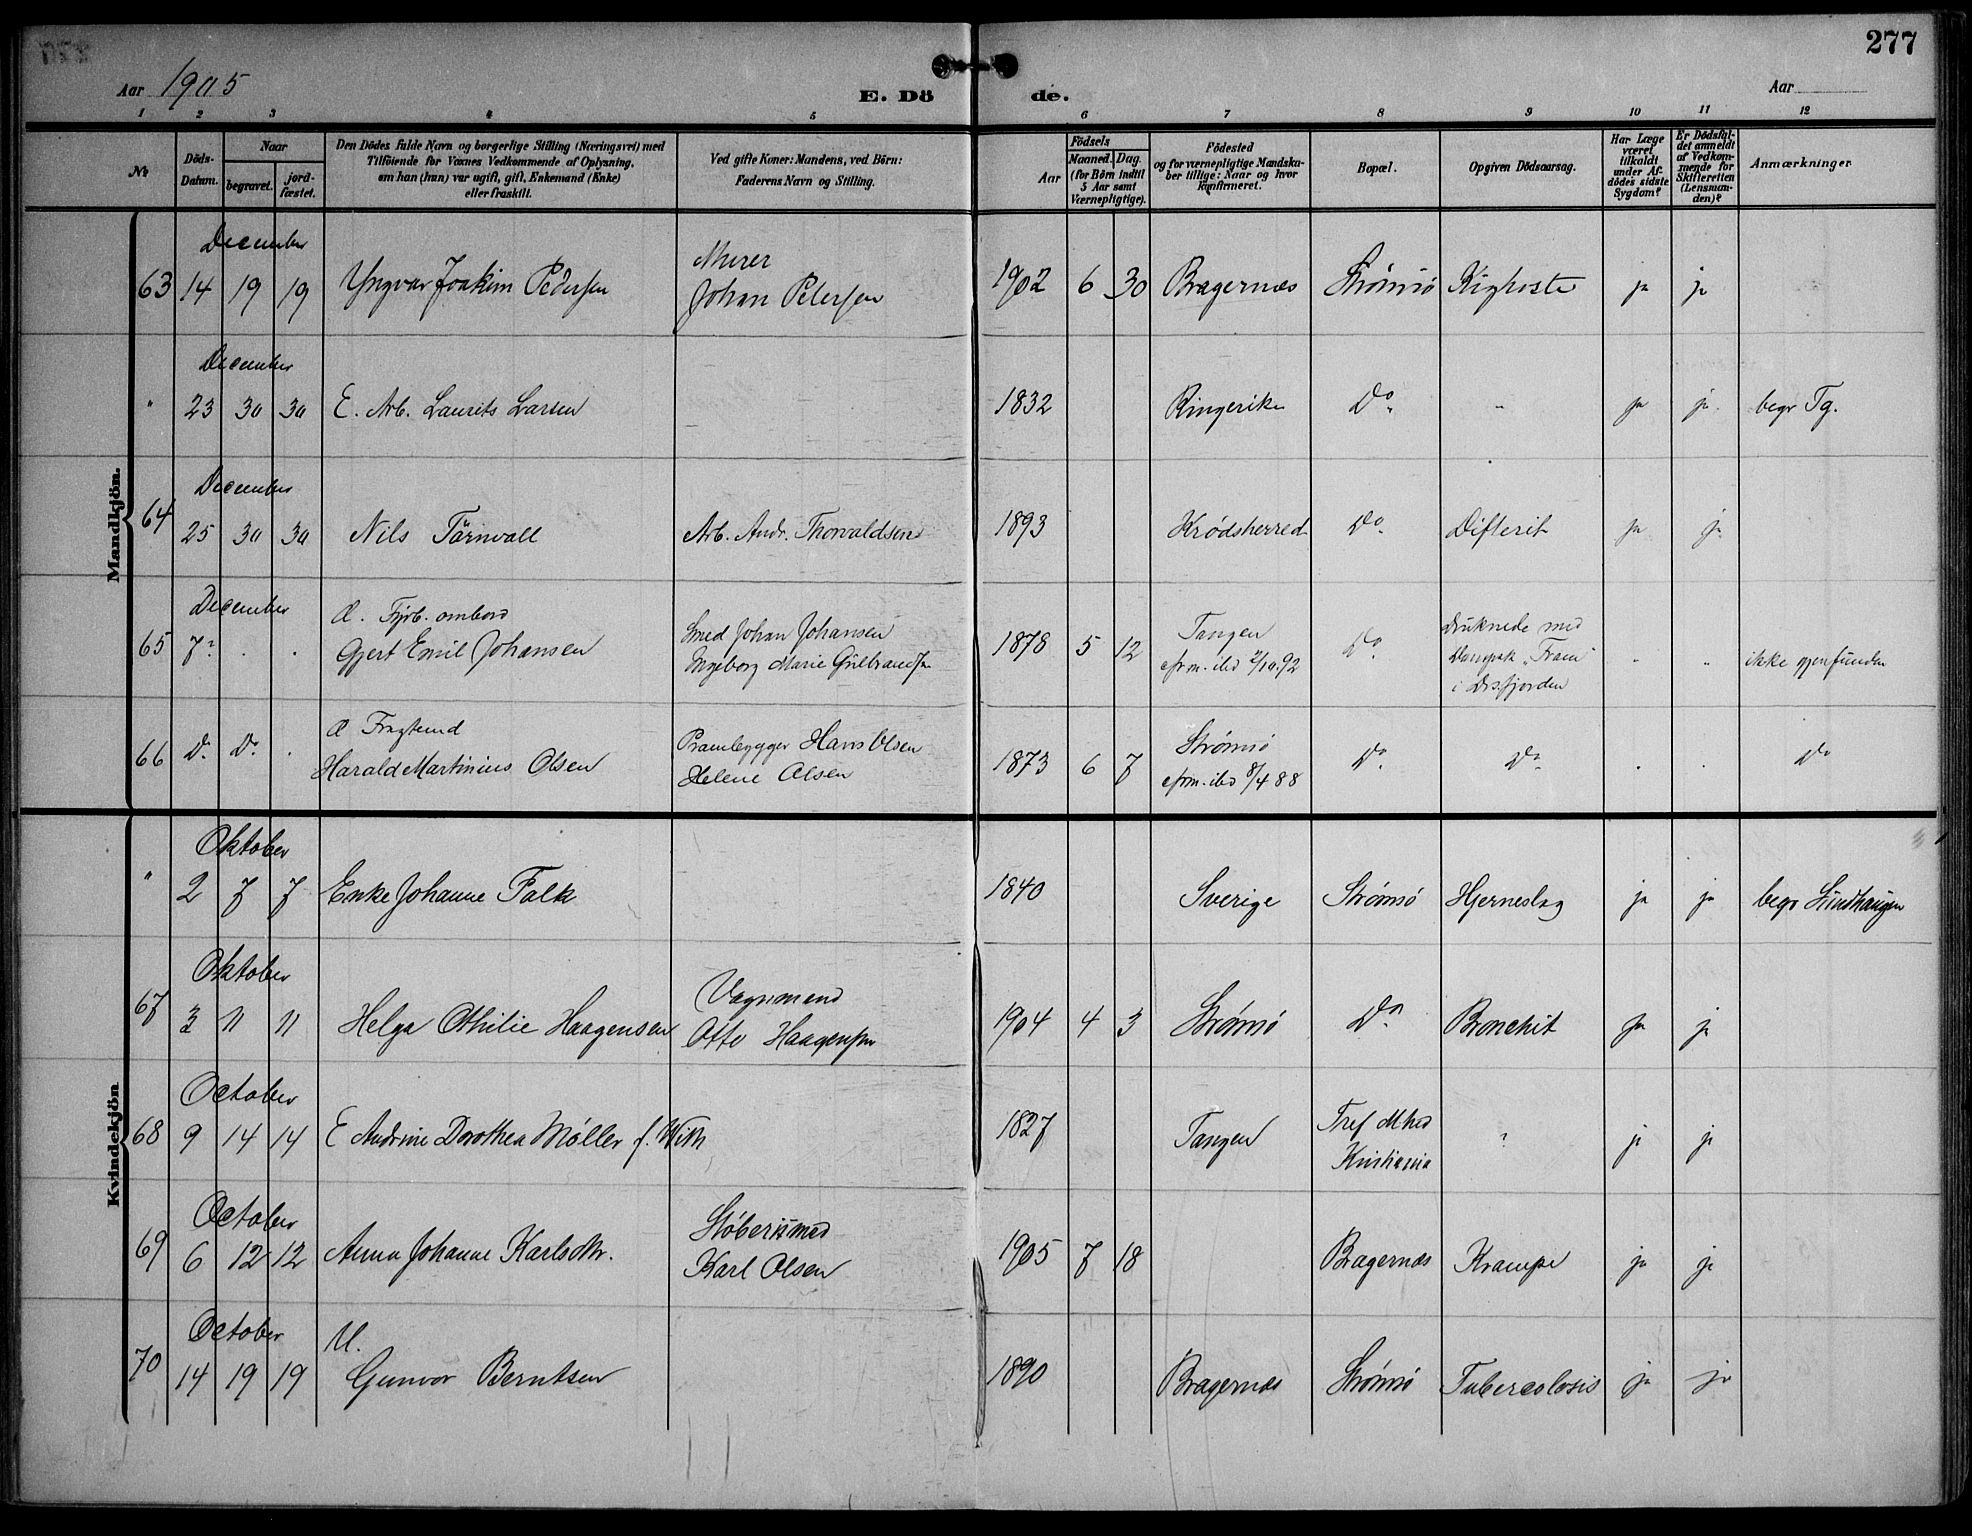 277
Aar 1905
E. Dö
de.
Aar
1 2 3 4 5 6 7 8 9 10 11 12
No
Döds-Datum.
Naar
begravet.
jordfæstet.
Den Dödes fulde Navn og borgerlige Stilling (Næringsvei) med
Tilföiende for Voxnes Vedkommende af Oplysning,
om han (hun) var ugift, gift, Enkemand (Enke)
eller fraskilt.
Ved gifte Koner: Mandens, ved Börn:
Faderens Navn og Stilling.
Födsels
Aar
Maaned. Dag.
(for Börn indtil
5 Aar samt
Værnepligtige).
Födested
og for værnepligtige Mandskaber tillige: Naar og hvor
konfirmeret.
Bopæl.
Opgiven Dödsaarsag.
Har Læge
været
tilkaldt
under Afdödes sidste
Sygdom?
Er Dödsfaldet anmeldt
af Vedkommende for
Skifteretten
(Lensmanden)?
Anmærkninger.
Mandkjön.
December
63 14 19 19 Yngvar Joakim Pedersen Murer Johan Petersen 1902 6 30 Bragernæs Strømsø Kighoste ja ja
December
" 23 30 30 E. Arb. Laurits Larsen 1832 Ringerike Do " ja ja begr Tg.
December
64 25 30 30 Nils Törnvall Arb. Andr. Thorvaldsen 1893 Krødsherred Do Difterit ja ja
December
65 7? . . Fyrb. ombord Gjert Emil Johansen Smed Johan Johansen Ingeborg Marie 1878 5 12 Tangen cfrm. ibd 2/10.92 Do Druknede med Dampsk "Fram" i Drsfjorden " " ikke gjenfunden
66 Do Do . Harald Martinius Olsen Prambygger Hans Olsen Helene Olsen 1873 6 7 Strømsø cfrm. ibd 8/4 88 Do Do . . Do
Kvindekjön
Oktober
" 2 7 7 Enke Johanne Falk 1840 Sverige Strømsø Hjerneslag ja ja begr Lundhaugen
Oktober
67 3 11 11 Helga Othilie Haagensen Vognmand Otto Haagensen 1904 4 3 Strømsø Do Bronchit ja ja
October
68 9 14 14 E Andrine Dorothea Møller f. With 1827 Tangen Kristiania " ja ja
October
69 6 12 12 Anna Johanne Karlsdtr. Støberismed Karl Olsen 1905 7 18 Bragernæs Krampe ja ja
October
70 14 19 19 U. Gunvor Berntsen 1890 Bragernæs Strømsø Tuberculosis ja ja